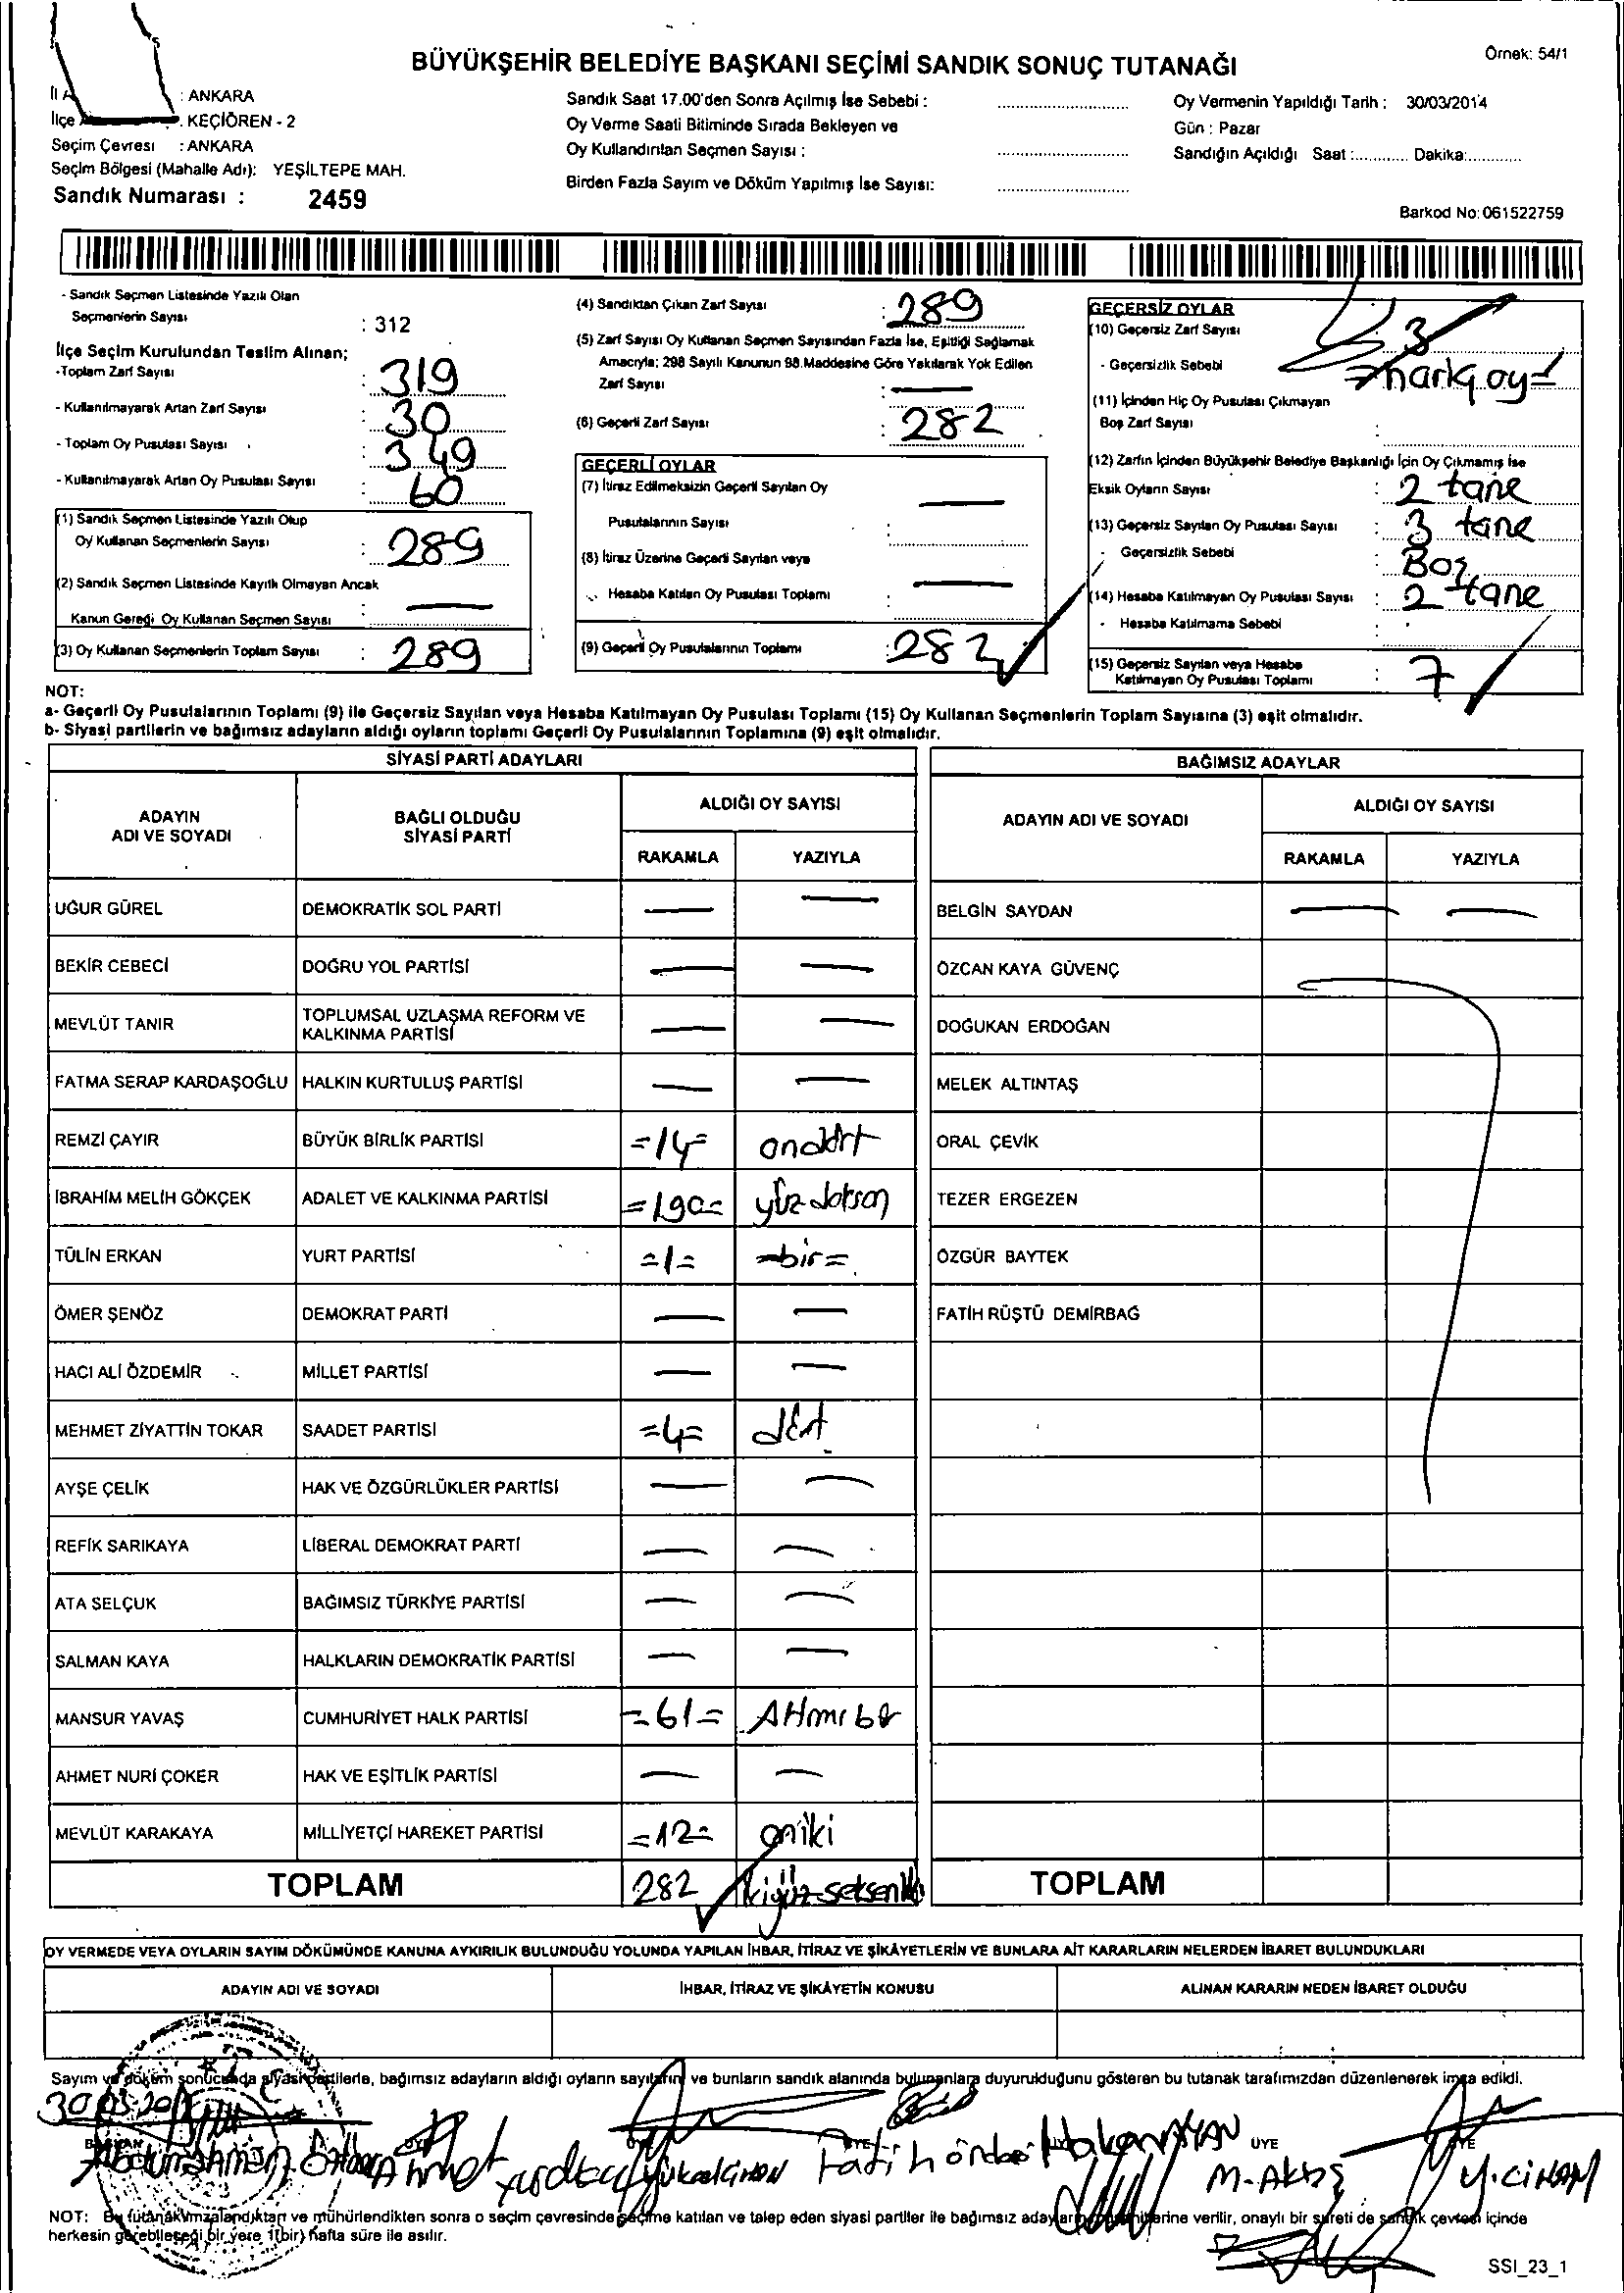 BÜYÜKŞEHİR BELEDİYE BAŞKANI SEÇİMİ SANDIK SONUÇ TUTANAĞI
Örnek: 54/1
: ANKARA
İlçe : KEÇİÖREN - 2
Seçim Çevresi : ANKARA
Seçim Bölgesi (Mahalle Adı): YEŞİLTEPE MAH.
Sandık Numarası : 2459
Sandık Saat 17.00'den Sonra Açılmış İse Sebebi :
Oy Verme Saati Bitiminde Sırada Bekleyen ve
Oy Kullandırılan Seçmen Sayısı :
Birden Fazla Sayım ve Döküm Yapılmış İse Sayısı:
Oy Vermenin Yapıldığı Tarih : 30/03/2014
Gün : Pazar
Sandığın Açıldığı Saat :............ Dakika:............
Barkod No:061522759
- Sandık Seçmen Listesinde Yazılı Olan
Seçmenlerin Sayısı : 312
İlçe Seçim Kurulundan Teslim Alınan;
-Toplam Zarf Sayısı : 319
- Kullanılmayarak Artan Zarf Sayısı : 30
- Toplam Oy Pusulası Sayısı : 349
- Kullanılmayarak Artan Oy Pusulası Sayısı : 60
(1) Sandık Seçmen Listesinde Yazılı Olup
Oy Kullanan Seçmenlerin Sayısı : 289
(2) Sandık Seçmen Listesinde Kayıtlı Olmayan Ancak
Kanun Gereği Oy Kullanan Seçmen Sayısı : —
(3) Oy Kullanan Seçmenlerin Toplam Sayısı : 289
(4) Sandıktan Çıkan Zarf Sayısı : 289
(5) Zarf Sayısı Oy Kullanan Seçmen Sayısından Fazla İse, Eşitliği Sağlamak
Amacıyla; 298 Sayılı Kanunun 98.Maddesine Göre Yakılarak Yok Edilen
Zarf Sayısı : —
(6) Geçerli Zarf Sayısı : 282
GEÇERLİ OYLAR
(7) İtiraz Edilmeksizin Geçerli Sayılan Oy
Pusulalarının Sayısı : —
(8) İtiraz Üzerine Geçerli Sayılan veya
Hesaba Katılan Oy Pusulası Toplamı : —
(9) Geçerli Oy Pusulalarının Toplamı : 282
GEÇERSİZ OYLAR
(10) Geçersiz Zarf Sayısı : 3
- Geçersizlik Sebebi
(11) İçinden Hiç Oy Pusulası Çıkmayan
Boş Zarf Sayısı :
(12) Zarfın İçinden Büyükşehir Belediye Başkanlığı İçin Oy Çıkmamış İse
Eksik Oyların Sayısı : 2 tane
(13) Geçersiz Sayılan Oy Pusulası Sayısı : 3 tane
- Geçersizlik Sebebi : Boş
(14) Hesaba Katılmayan Oy Pusulası Sayısı : 2 tane
- Hesaba Katılmama Sebebi :
(15) Geçersiz Sayılan veya Hesaba
Katılmayan Oy Pusulası Toplamı : 7
NOT:
a- Geçerli Oy Pusulalarının Toplamı (9) ile Geçersiz Sayılan veya Hesaba Katılmayan Oy Pusulası Toplamı (15) Oy Kullanan Seçmenlerin Toplam Sayısına (3) eşit olmalıdır.
b- Siyasi partilerin ve bağımsız adayların aldığı oyların toplamı Geçerli Oy Pusulalarının Toplamına (9) eşit olmalıdır.
SİYASİ PARTİ ADAYLARI
ADAYIN ADI VE SOYADI BAĞLI OLDUĞU SİYASİ PARTİ ALDIĞI OY SAYISI
RAKAMLA YAZIYLA
UĞUR GÜREL DEMOKRATİK SOL PARTİ — —
BEKİR CEBECİ DOĞRU YOL PARTİSİ — —
MEVLÜT TANIR TOPLUMSAL UZLAŞMA REFORM VE KALKINMA PARTİSİ — —
FATMA SERAP KARDAŞOĞLU HALKIN KURTULUŞ PARTİSİ — —
REMZİ ÇAYIR BÜYÜK BİRLİK PARTİSİ =14= ondört
İBRAHİM MELİH GÖKÇEK ADALET VE KALKINMA PARTİSİ =190= yüz doksan
TÜLİN ERKAN YURT PARTİSİ =1= =bir=
ÖMER ŞENÖZ DEMOKRAT PARTİ — —
HACI ALİ ÖZDEMİR MİLLET PARTİSİ — —
MEHMET ZİYATTİN TOKAR SAADET PARTİSİ =4= dört
AYŞE ÇELİK HAK VE ÖZGÜRLÜKLER PARTİSİ — —
REFİK SARIKAYA LİBERAL DEMOKRAT PARTİ — —
ATA SELÇUK BAĞIMSIZ TÜRKİYE PARTİSİ — —
SALMAN KAYA HALKLARIN DEMOKRATİK PARTİSİ — —
MANSUR YAVAŞ CUMHURİYET HALK PARTİSİ =61=
AHMET NURİ ÇOKER HAK VE EŞİTLİK PARTİSİ — —
MEVLÜT KARAKAYA MİLLİYETÇİ HAREKET PARTİSİ =12= oniki
TOPLAM 282
BAĞIMSIZ ADAYLAR
ADAYIN ADI VE SOYADI ALDIĞI OY SAYISI
RAKAMLA YAZIYLA
BELGİN SAYDAN — —
ÖZCAN KAYA GÜVENÇ
DOĞUKAN ERDOĞAN
MELEK ALTINTAŞ
ORAL ÇEVİK
TEZER ERGEZEN
ÖZGÜR BAYTEK
FATİH RÜŞTÜ DEMİRBAĞ
TOPLAM
OY VERMEDE VEYA OYLARIN SAYIM DÖKÜMÜNDE KANUNA AYKIRILIK BULUNDUĞU YOLUNDA YAPILAN İHBAR, İTİRAZ VE ŞİKÂYETLERİN VE BUNLARA AİT KARARLARIN NELERDEN İBARET BULUNDUKLARI
ADAYIN ADI VE SOYADI İHBAR, İTİRAZ VE ŞİKÂYETİN KONUSU ALINAN KARARIN NEDEN İBARET OLDUĞU
Sayım ve döküm sonucunda siyasi partilerle, bağımsız adayların aldığı oyların sayılarını ve bunların sandık alanında bulunanlara duyurulduğunu gösteren bu tutanak tarafımızdan düzenlenerek imza edildi.
ÜYE
M. Aktaş
Y. CİHAN
NOT: Bu tutanak imzalandıktan ve mühürlendikten sonra o seçim çevresinde seçime katılan ve talep eden siyasi partiler ile bağımsız adayların müşahitlerine verilir, onaylı bir sureti de sandık çevresi içinde
herkesin görebileceği bir yere 1(bir) hafta süre ile asılır.
SSI_23_1